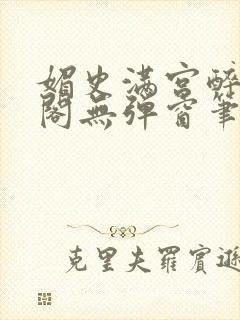 媚史满宫醉
阁无弹窗笔
克里夫罗宾逊